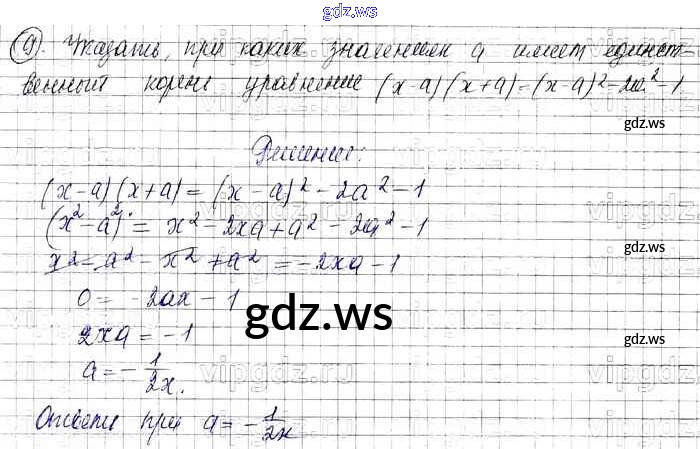 gdz.ws
9). Указать, при каких значениях a имеет единст-
венный корень уравнение (x-a)(x+a)=(x-a)²-2a²-1
gdz.ws
Решение:
(x-a)(x+a)=(x-a)²-2a²-1
(x²-a²)=x²-2xa+a²-2a²-1
x²-a²-x²+a²=-2xa-1
0=-2ax-1
gdz.ws
2xa=-1
gdz.ws
a=-1/2x.
vipgdz.ru
Ответ: при a=-1/2x